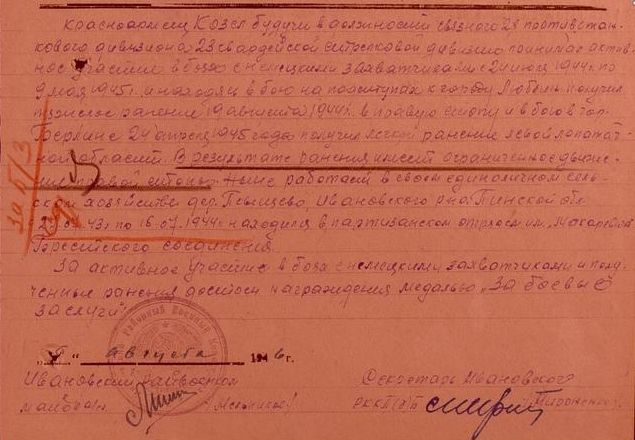 Красноармеец Козел будучи в должности связного 28 противотан-
кового дивизиона 23 гвардейской стрелковой дивизии принимал актив-
ное участие в боях с немецкими захватчиками с 24 июля 1944 г. по
9 мая 1945 г. и находясь в бою на подступах к городу Люблин получил
ранение 19 августа 1944 г. в правую стопу и в бою в гор.
Берлине 24 апреля 1945 года получил легкое ранение левой лопат
ной области. В результате ранения имеет ограниченное движе-
ние правой стопы. Ныне работает в своем единоличном сель-
ском хозяйстве дер. Псыщево, Ивановского р-на Пинской обл.
43 г. по 16.07.1944 г. находился в партизанском отряде им. Макаревича
Брестского соединения.
За активное участие в боях с немецкими захватчиками и полу-
ченные ранения достоин награждения медалью „За боевые
заслуги"
августа 1946 г.
Ивановский Райвоенком
майор
Секретарь Ивановского
РК КП(б)Б
за Б/З